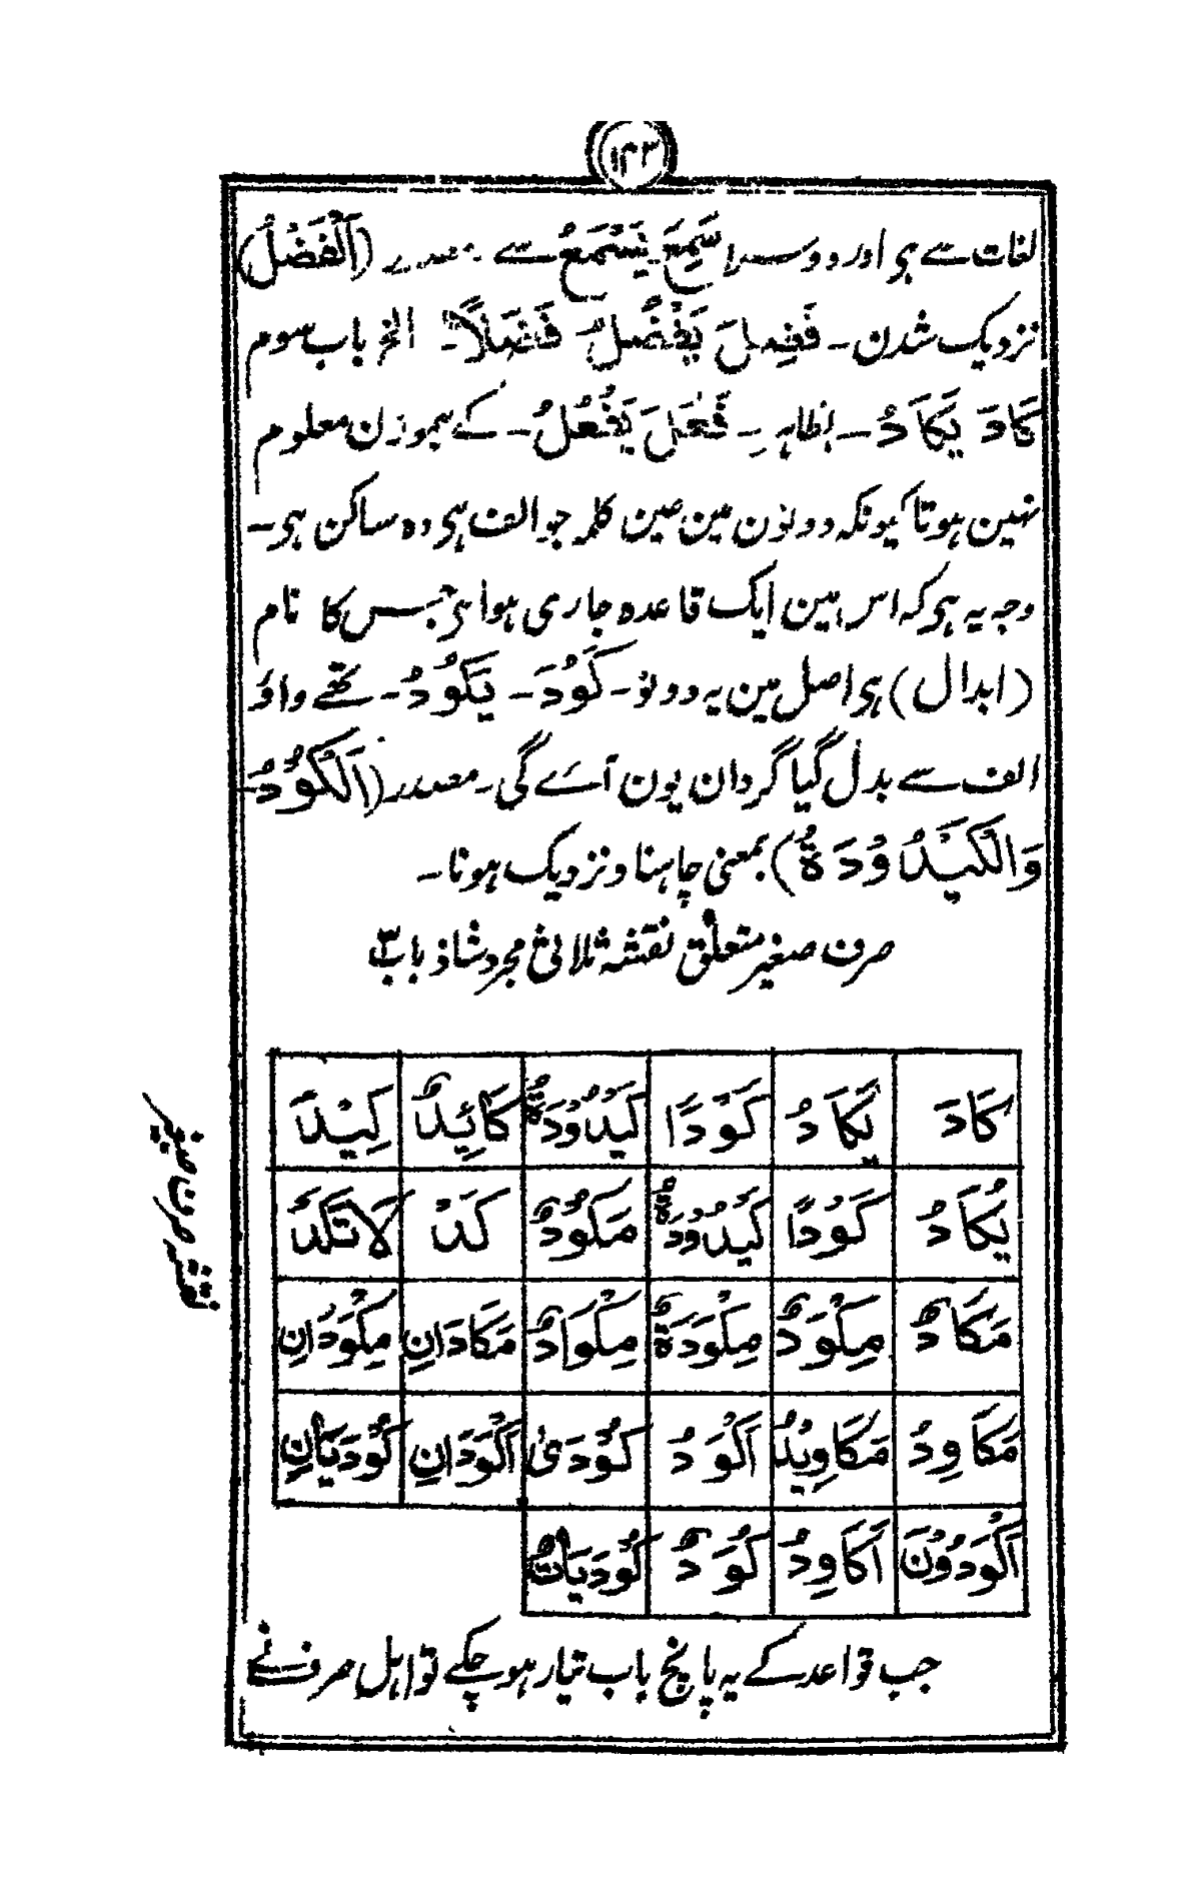 ۱۴۳
لغات سے ہی اور دوسرا سَمِعَ یَسْمَعُ سے مصدر (اَلْفَضْلُ)
نزدیک شدن۔ فَضِلَ یَفْضُلُ فَضْلًا۔ الخ باب سوم
کَادَ یَکَادُ۔ بظاہر۔ فَعَلَ یَفْعُلُ۔ کے ہموزن معلوم
نہین ہوتا کیونکہ دونون مین عین کلمہ جو الف ہی وہ ساکن ہی۔
وجہ یہ ہی کہ اس مین ایک قاعدہ جاری ہوا ہی جس کا نام
(ابدال) ہی اصل مین یہ دونو۔ کَوُدَ۔ یَکْوُدُ۔ تھے واؤ
الف سے بدل گیا گردان یون آے گی۔ مصدر (اَلْکَوْدُ
وَالْکَیْدُوْدَةُ) بمعنی چاہنا و نزدیک ہونا۔
صرف صغیر متعلق نقشہ ثلاثی مجرد شاذ باب ۳
کَادَ یَکَادُ کَوْدًا کَیْدُوْدَةً کَائِدٌ کِیْدَ
یُکَادُ کَوْدًا کَیْدُوْدَةً مَکُوْدٌ کَدْ لَاتَکَدْ
مَکَادٌ مِکْوَدٌ مِکْوَدَةٌ مِکْوَادٌ مَکَادَانِ مِکْوَدَانِ
مَکَاوِدُ مَکَاوِیْدُ اَکْوَدُ کُوْدٰی اَکْوَدَانِ کُوْدَیَانِ
اَکْوَدُوْنَ اَکَاوِدُ کُوَدٌ کُوْدَیَاتٌ
نقشہ صرف صغیر
جب قواعد کے یہ پانچ باب تیار ہو چکے تو اہل صرف نے